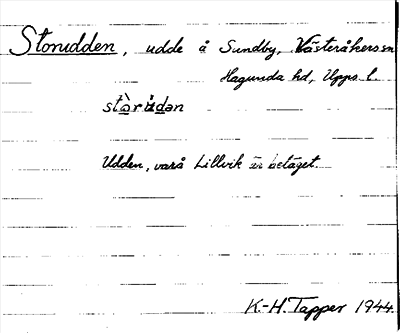 Storudden, udde å Sundby, Västeråkers sn
Hagunda hd, Upps. l.
stòrùdən
Udden, varå Lillvik är beläget.
K-H. Tapper 1944.